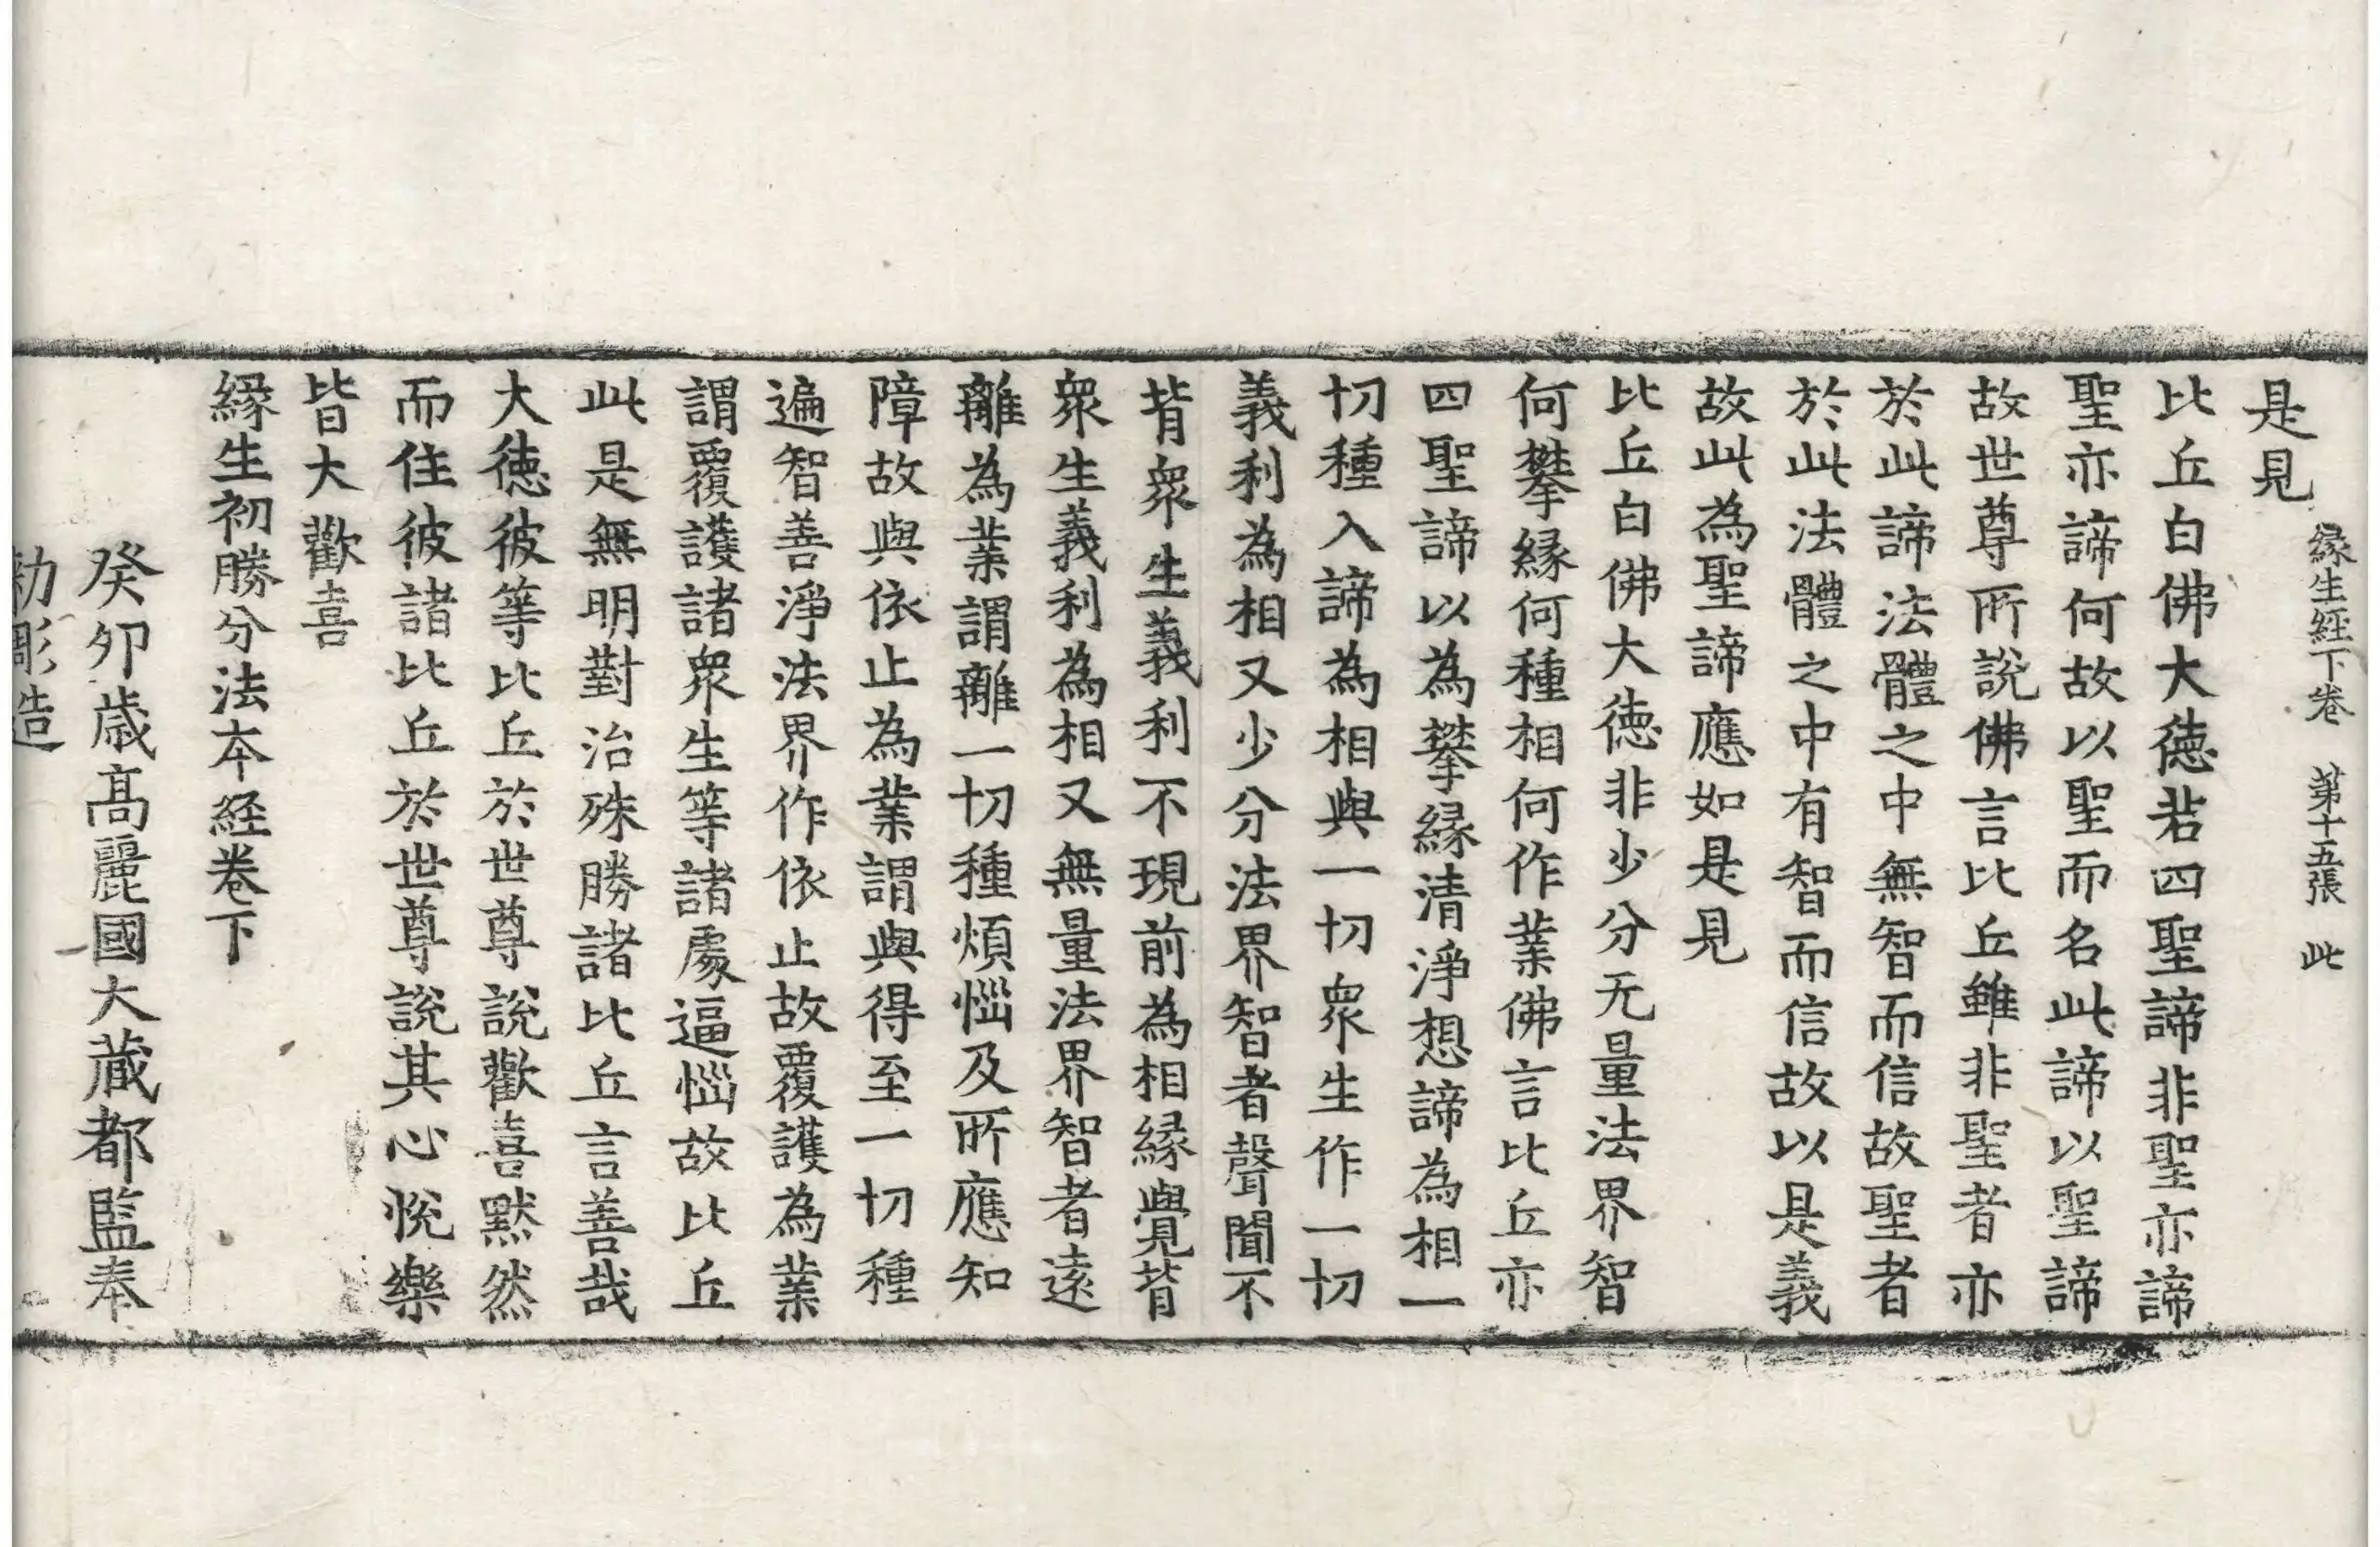 緣生経下卷　第十五張　此
是見
比丘白佛大德若四聖諦非聖亦諦
聖亦諦何故以聖而名此諦以聖諦
故世尊所說佛言比丘雖非聖者亦
於此諦法體之中無智而信故聖者
於此法體之中有智而信故以是義
故此為聖諦應如是見
比丘白佛大德非少分无量法界智
何攀緣何種相何作業佛言比丘亦
四聖諦以為攀緣清淨想諦為相一
切種入諦為相與一切衆生作一切
義利為相又少分法界智者聲聞不
背衆生義利不現前為相緣覺背
衆生義利為相又無量法界智者遠
離為業謂離一切種煩惱及所應知
障故與依止為業謂與得至一切種
遍智善淨法界作依止故覆護為業
謂覆護諸衆生等諸處逼惱故比丘
此是無明對治殊勝諸比丘言善哉
大德彼等比丘於世尊說歡喜默然
而住彼諸比丘於世尊說其心悅樂
皆大歡喜
緣生初勝分法本経卷下
癸卯歲高麗國大藏都監奉
勅彫造